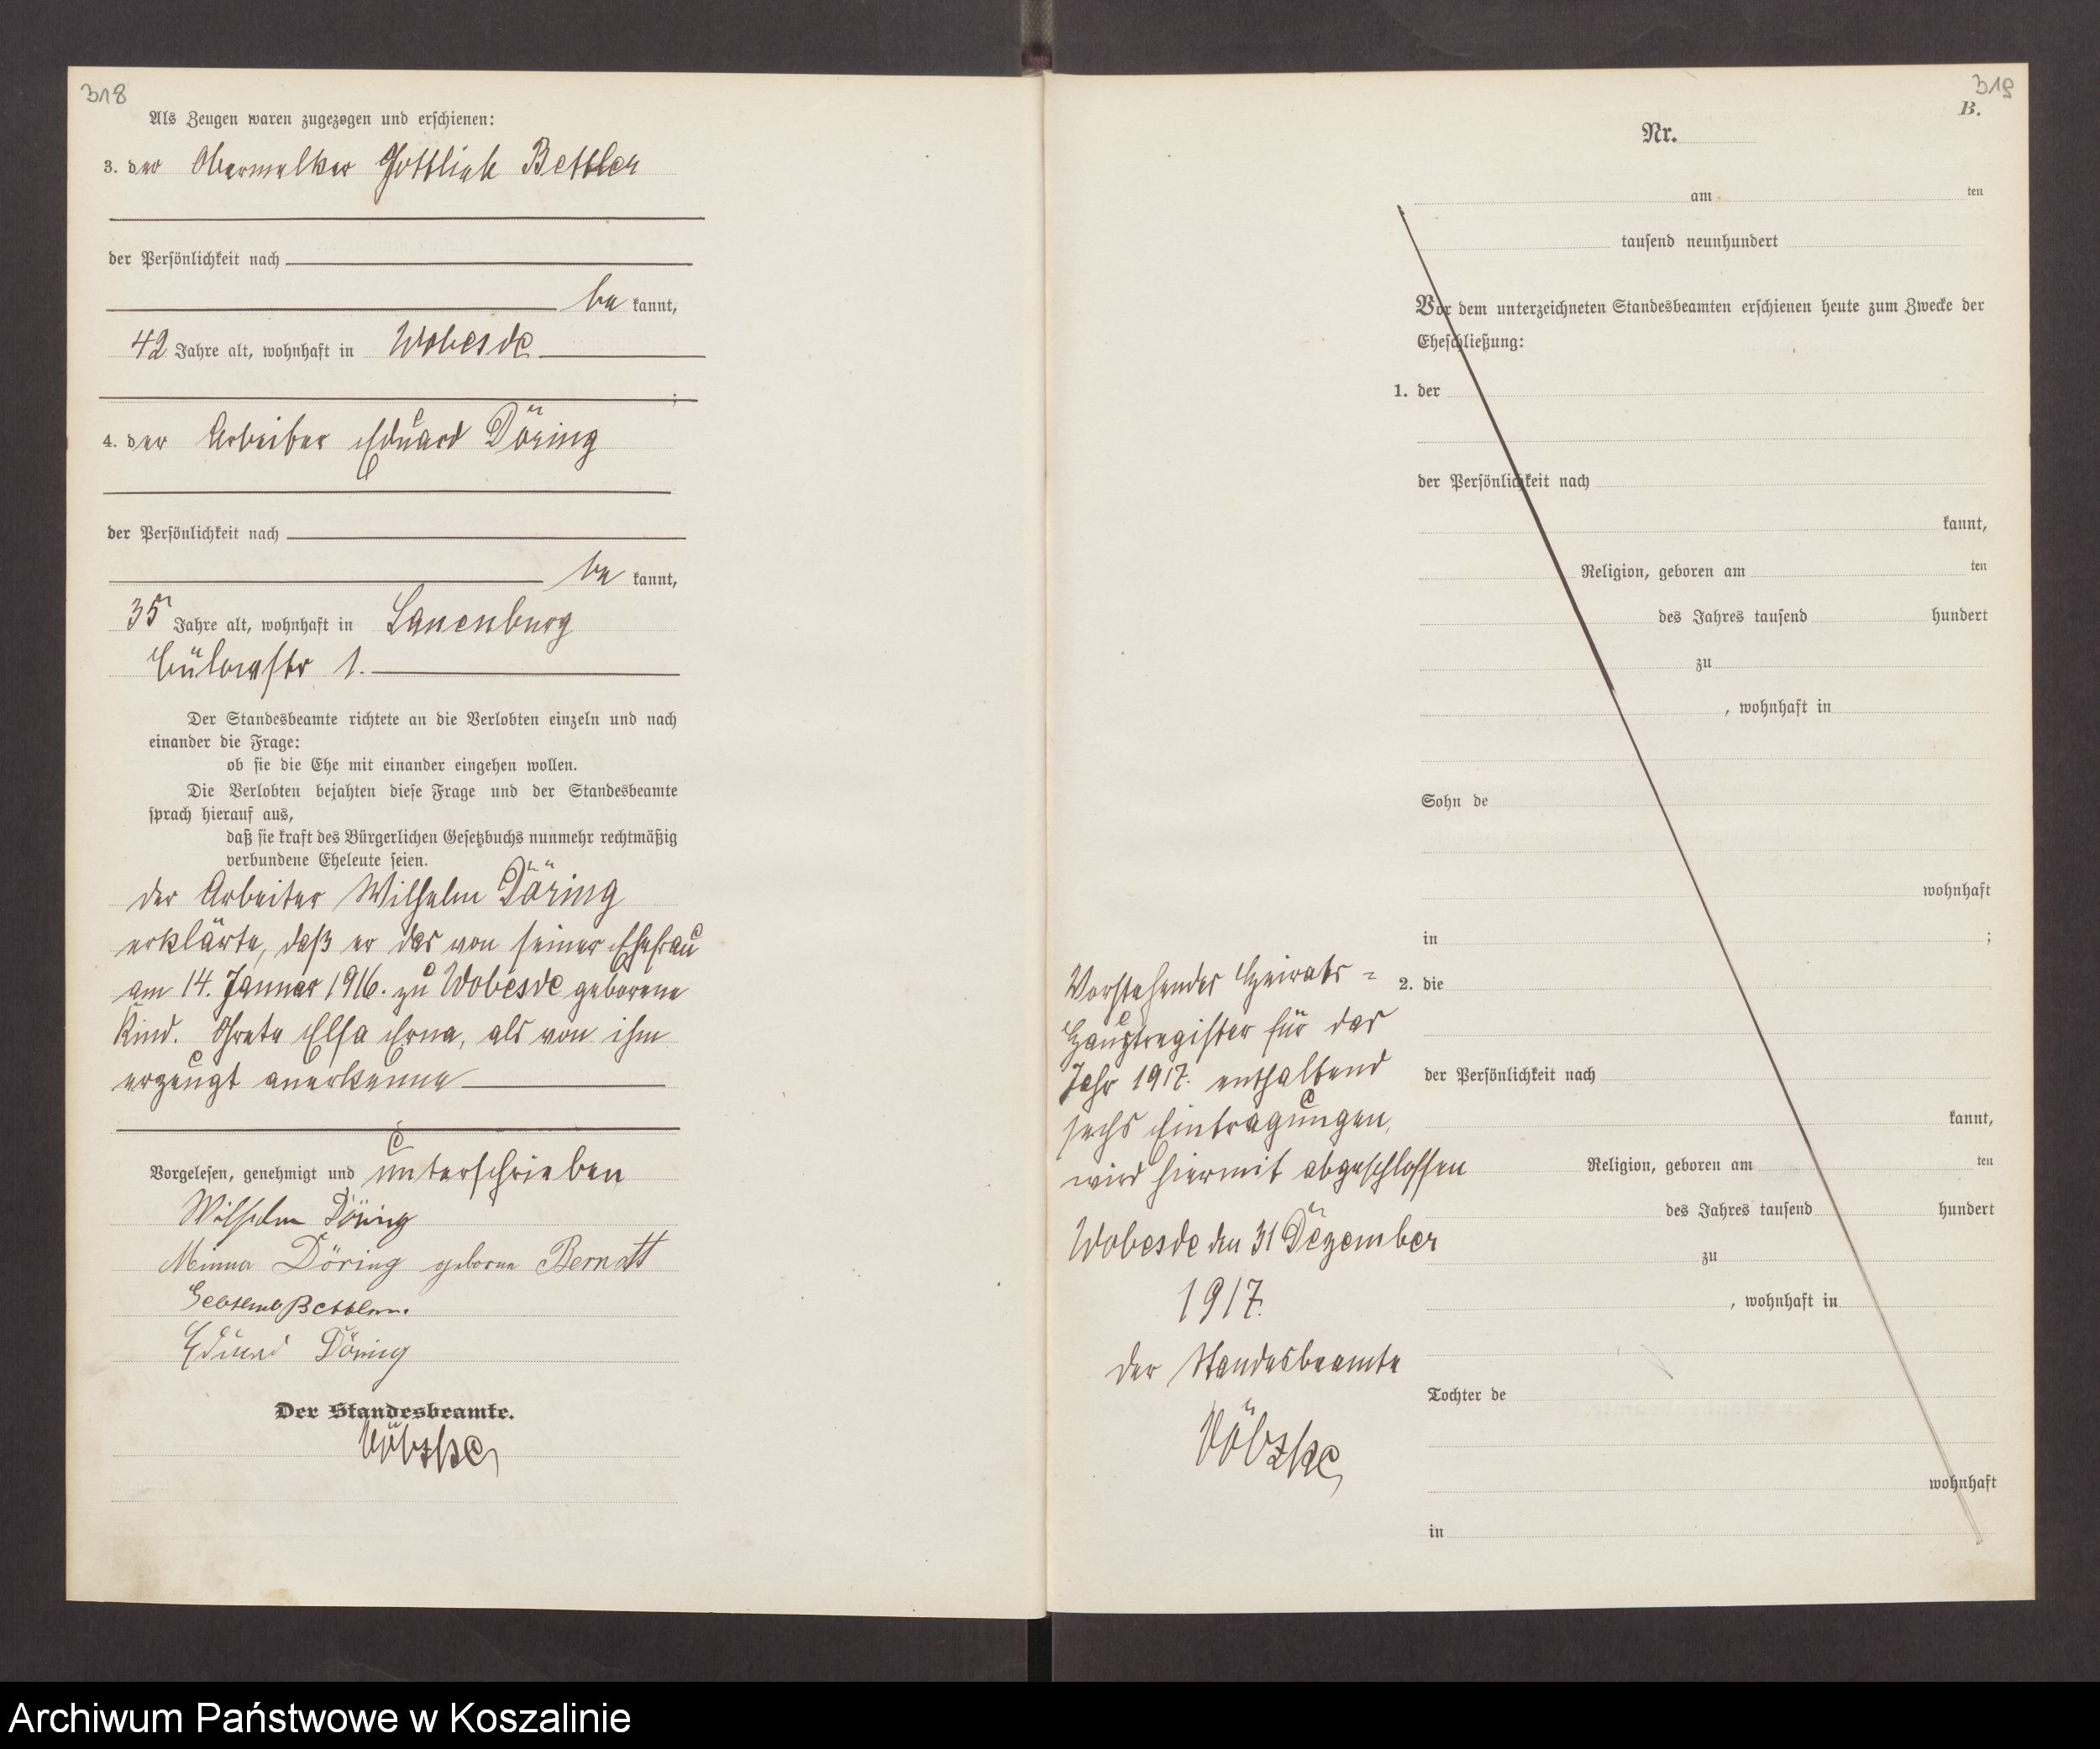 318
Als Zeugen waren zugezogen und erschienen:
3. der Obermelker Gottlieb Bettler
der Persönlichkeit nach
be kannt,
42 Jahre alt, wohnhaft in Wobesde
;
4. der Arbeiter Eduard Döring
der Persönlichkeit nach
be kannt,
35 Jahre alt, wohnhaft in Lauenburg
Bülowstr 1.
Der Standesbeamte richtete an die Verlobten einzeln und nach
einander die Frage:
ob sie die Ehe mit einander eingehen wollen.
Die Verlobten bejahten diese Frage und der Standesbeamte
sprach hierauf aus,
daß sie kraft des Bürgerlichen Gesetzbuchs nunmehr rechtmäßig
verbundene Eheleute seien.
Der Arbeiter Wilhelm Döring
erklärte, daß er das von seiner Ehefrau
am 14. Januar 1916. zu Wobesde geborene
Kind. Grete Elsa Erna, als von ihm
erzeugt anerkenne
Vorgelesen, genehmigt und unterschrieben
Wilhelm Döring
Minna Döring geborne Bernatt
Bettler
Eduard Döring
Der Standesbeamte.
319
B.
Nr.
am ten
tausend neunhundert
Vor dem unterzeichneten Standesbeamten erschienen heute zum Zwecke der
Eheschließung:
1. der
der Persönlichkeit nach
kannt,
Religion, geboren am ten
des Jahres tausend hundert
zu
, wohnhaft in
Sohn de
wohnhaft
in ;
2. die
der Persönlichkeit nach
kannt,
Religion, geboren am ten
des Jahres tausend hundert
zu
, wohnhaft in
Tochter de
wohnhaft
in
Vorstehendes Heirats=
Hauptregister für das
Jahr 1917. enthaltend
sechs Eintragungen,
wird hiermit abgeschlossen
Wobesde den 31 Dezember
1917.
Der Standesbeamte
Archiwum Państwowe w Koszalinie